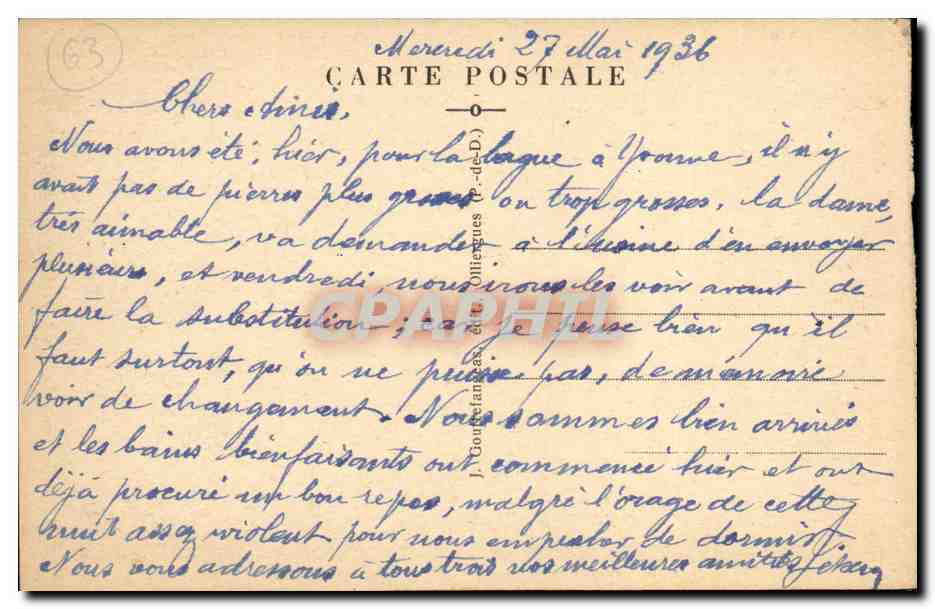 63
Mercredi 27 Mai 1936
CARTE POSTALE
Chers Amis,
Nous avons été, hier, pour la bague à Yvonne, il n'y
avait pas de pierres plus grosses ou trop grosses. La dame,
très aimable, va demander à l'usine d'en envoyer
plusieurs, et vendredi, nous irons les voir avant de
faire la substitution, car je pense bien qu'il
faut surtout, qu'on ne puisse pas, de mémoire
voir de changement. Nous sommes bien arrivés
et les bains bienfaisants ont commencé hier et ont
déjà procuré un bon repos, malgré l'orage de cette
nuit assez violent pour nous empêcher de dormir.
Nous vous adressons à tous trois nos meilleures amitiés
J. Gouttefangeas, édit., Olliergues (P.-de-D.)
CPAPHIL